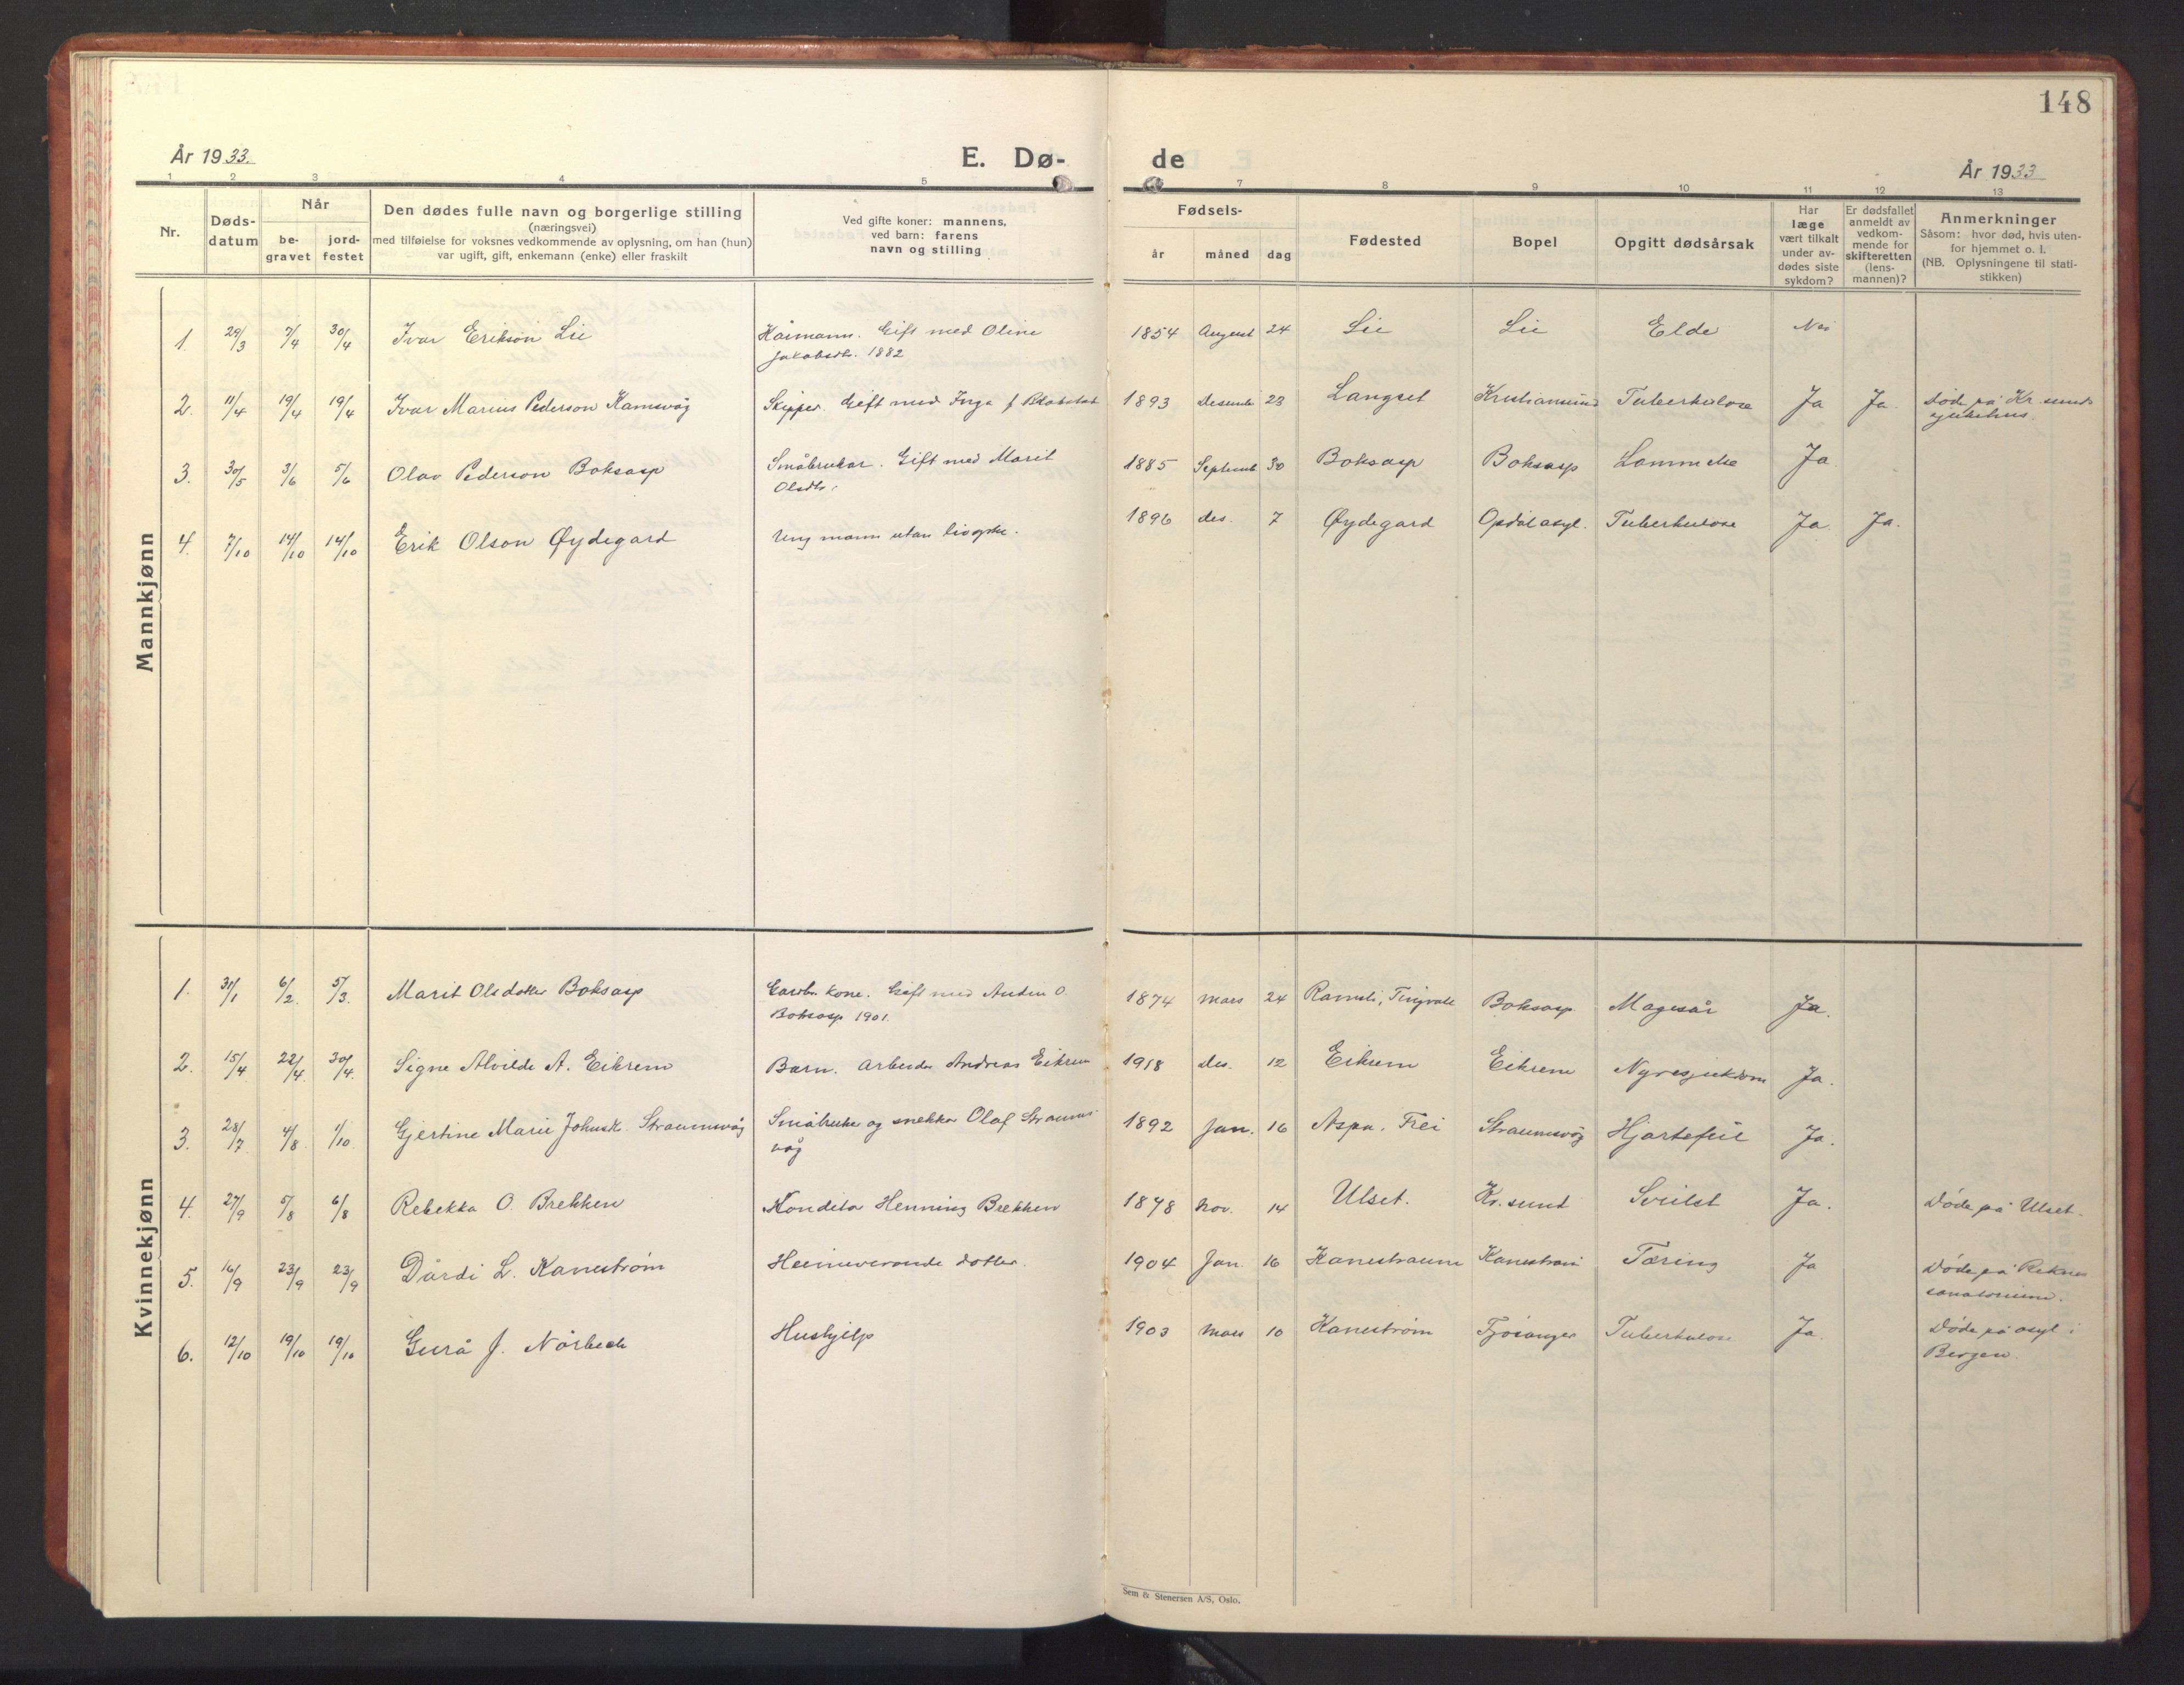 148
År 1933.
E. Dø-
de
År 1933
1 2 3 4 5 7 8 9 10 11 12 13
Nr.
Døds-
datum
Når
be-
gravet
jord-
festet
Den dødes fulle navn og borgerlige stilling
(næringsvei)
med tilføielse for voksnes vedkommende av oplysning, om han (hun)
var ugift, gift, enkemann (enke) eller fraskilt
Ved gifte koner: mannens,
ved barn: farens
navn og stilling
Fødsels-
år
måned
dag
Fødested
Bopel
Opgitt dødsårsak
Har
læge
vært tilkalt
under av-
dødes siste
sykdom?
Er dødsfallet
anmeldt av
vedkom-
mende for
skifteretten
(lens-
mannen)?
Anmerkninger
Såsom: hvor død, hvis uten-
for hjemmet o. l.
(NB. Oplysningene til stati-
stikken)
Mannkjønn
1. 29/3 7/4 30/4 Ivar Erikson Lie Kårmann. Gift med Oline 1854 August 24 Lie Lie Elde Nei
Jakobsdt. 1882
2. 11/4 19/4 19/4 Ivar Marius Pederson Ramsvåg Skipper. Gift med Inga J. 1893 Desemb 23 Langset Kristiansund Tuberkulose Ja Ja. Døde på Kr. sunds
sjukehus.
3. 30/5 3/6 5/6 Olav Pederson Boksasp Småbrukar. Gift med Marit 1885 Septemb 30 Boksasp Boksasp Lammelse Ja
Olsdt.
4. 7/10 14/10 14/10 Erik Olson Øydegard Ung mann utan livsyrke. 1896 des. 7 Øydegard Opdøl asyl. Tuberkulose Ja. Ja.
Kvinnekjønn
1. 31/1 6/2. 5/3. Marit Olsdotter Boksasp Gardbr. kone. Gift med Anders O. 1874 mars 24 Ramsli, Tingvoll Boksasp Magesår Ja.
Boksasp 1901.
2. 15/4 22/4. 30/4. Signe Alvilde A. Eikrem Barn. Arbeider Andreas Eikrem 1918 des. 12 Eikrem Eikrem Nyresjukdom Ja.
3. 28/7 4/8. 1/10. Gjertine Marie Johnsdt. Straumsvåg Småbruker og snekker Olaf Straums- 1892 Jan. 16 Aspa, Frei Straumsvåg Hjartefeil Ja.
våg
4. 27/9 5/8 6/8 Rebekka O. Brekken Konditor Henning Brekken 1878 Nov. 14 Ulset. Kr. sund Ja. Døde på Ulset.
5. 16/9 23/9 23/9 Dårdi L. Kanestrøm Heimeverande dotter. 1904 Jan. 16 Kanestraum Kanestraum Tæring Ja Døde på Reknes
sanatorium.
6. 12/10 19/10 19/10 Gurå J. Nårbech Hushjelp 1903 Mars 10 Kanestrøm Fjøsanger Tuberkulose Ja. Døde på asyl i
Bergen.
Sem & Stenersen A/S, Oslo.